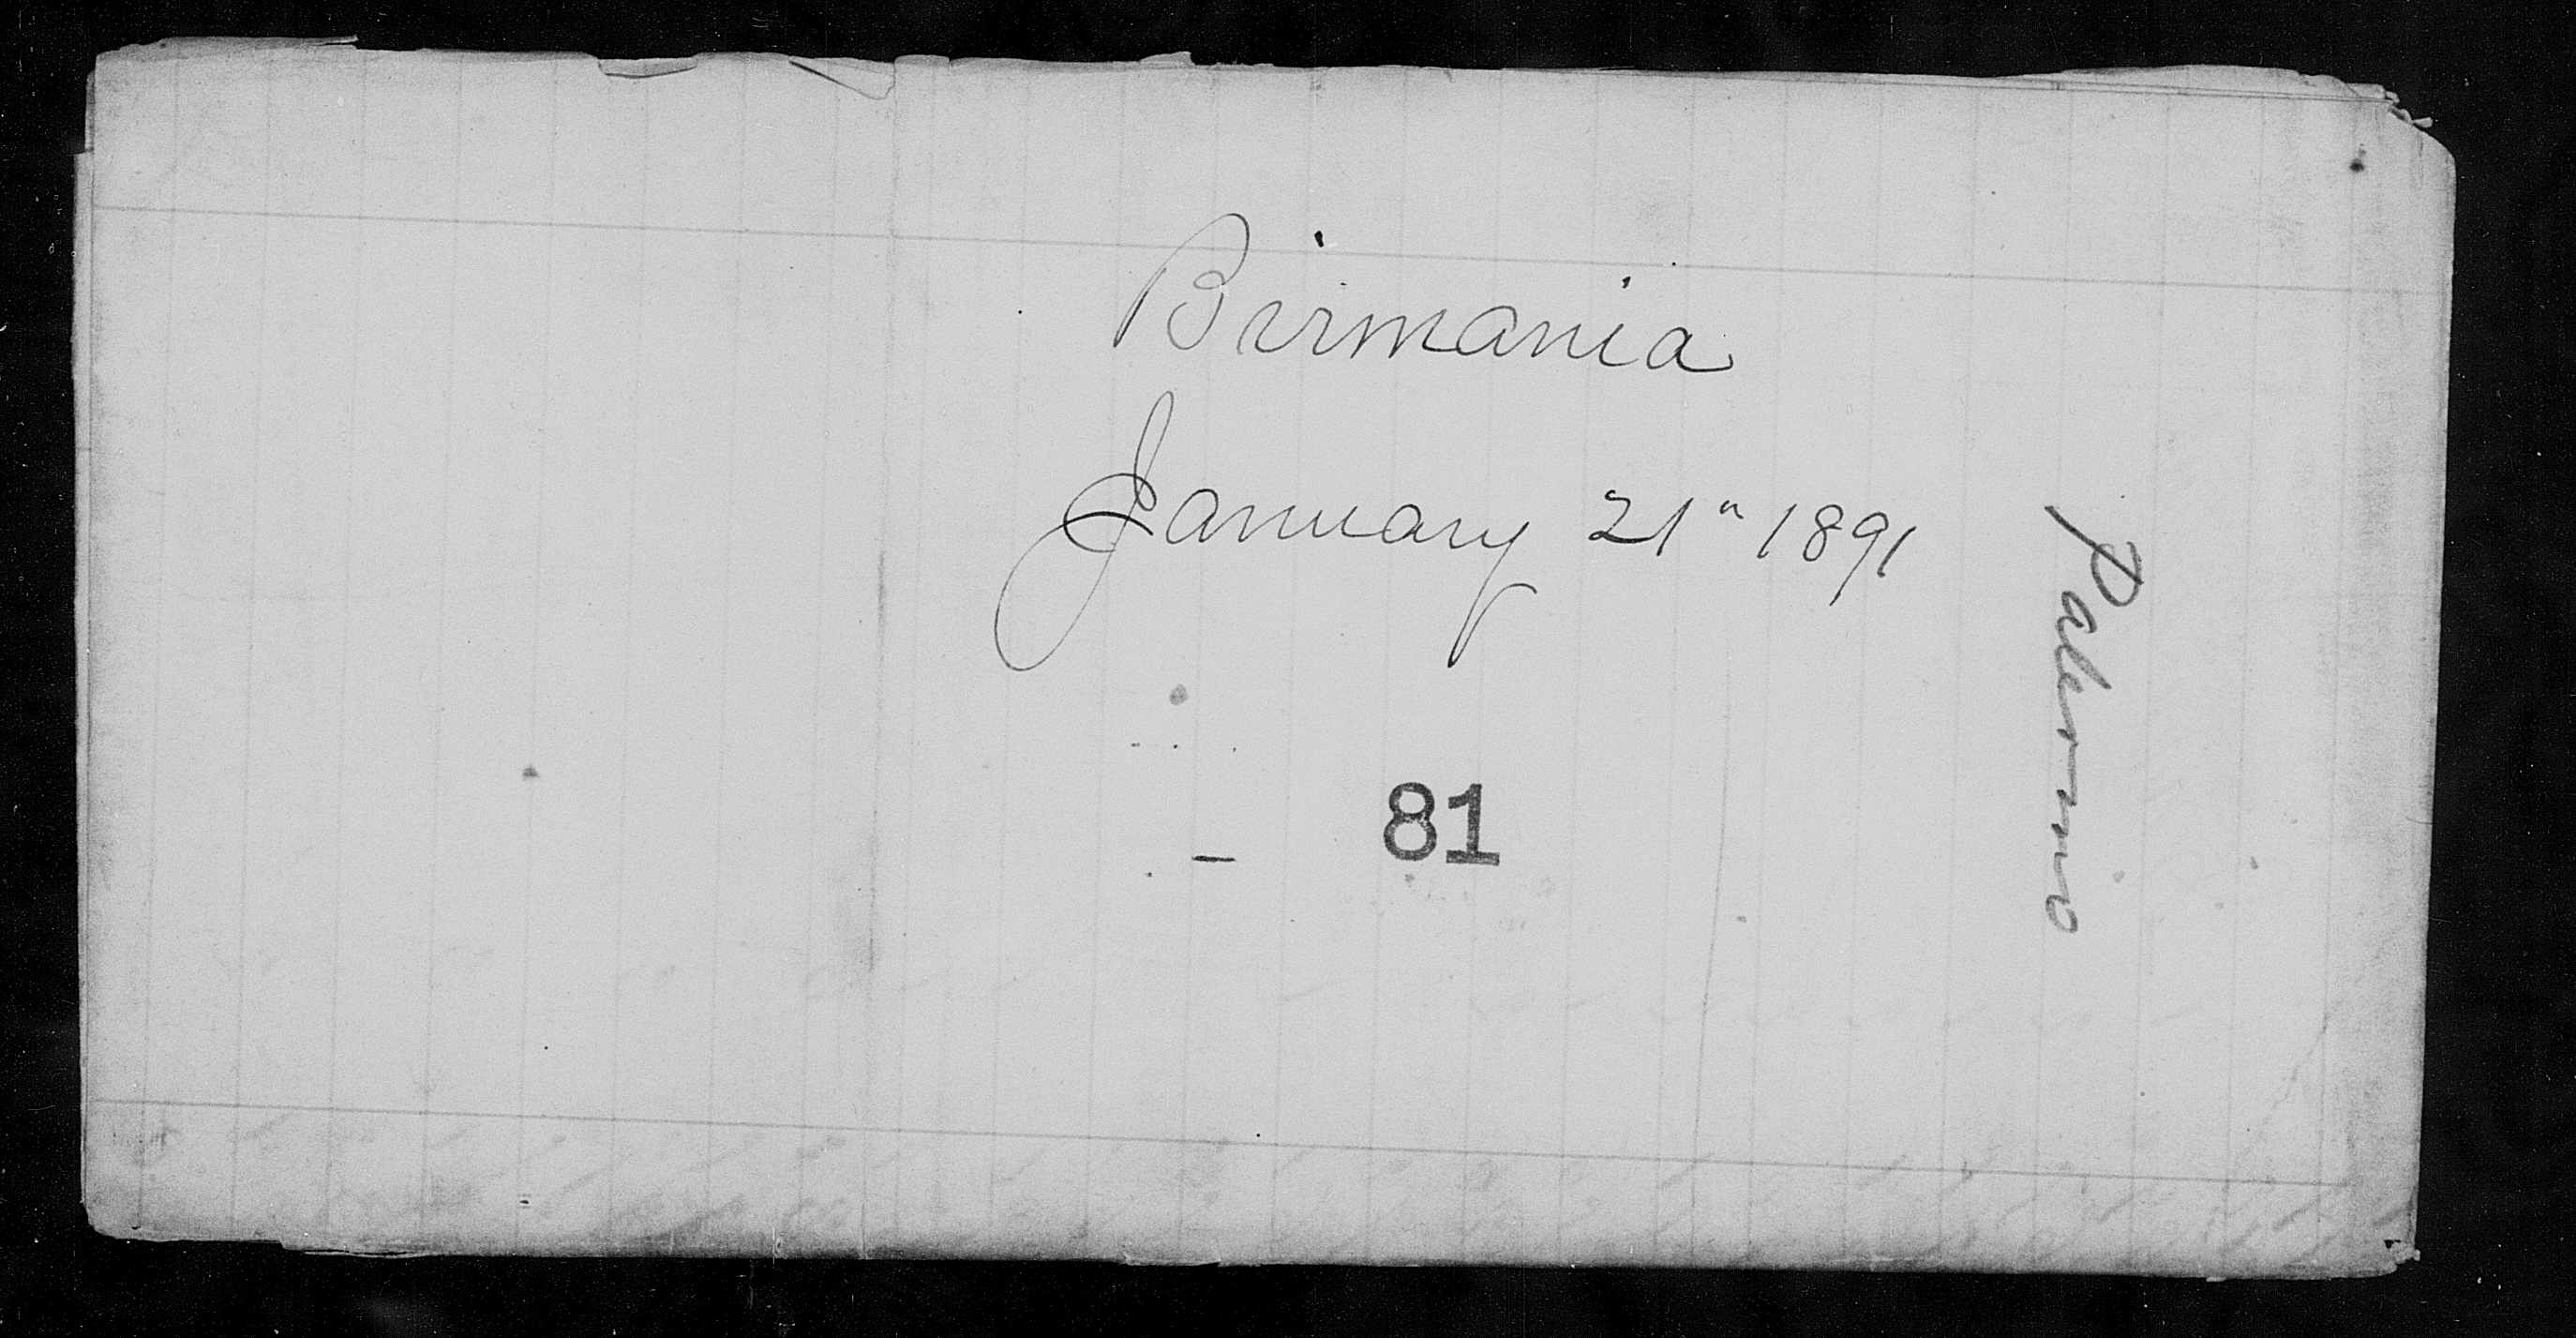 Birmania
January 21" 1891
Palermo
81